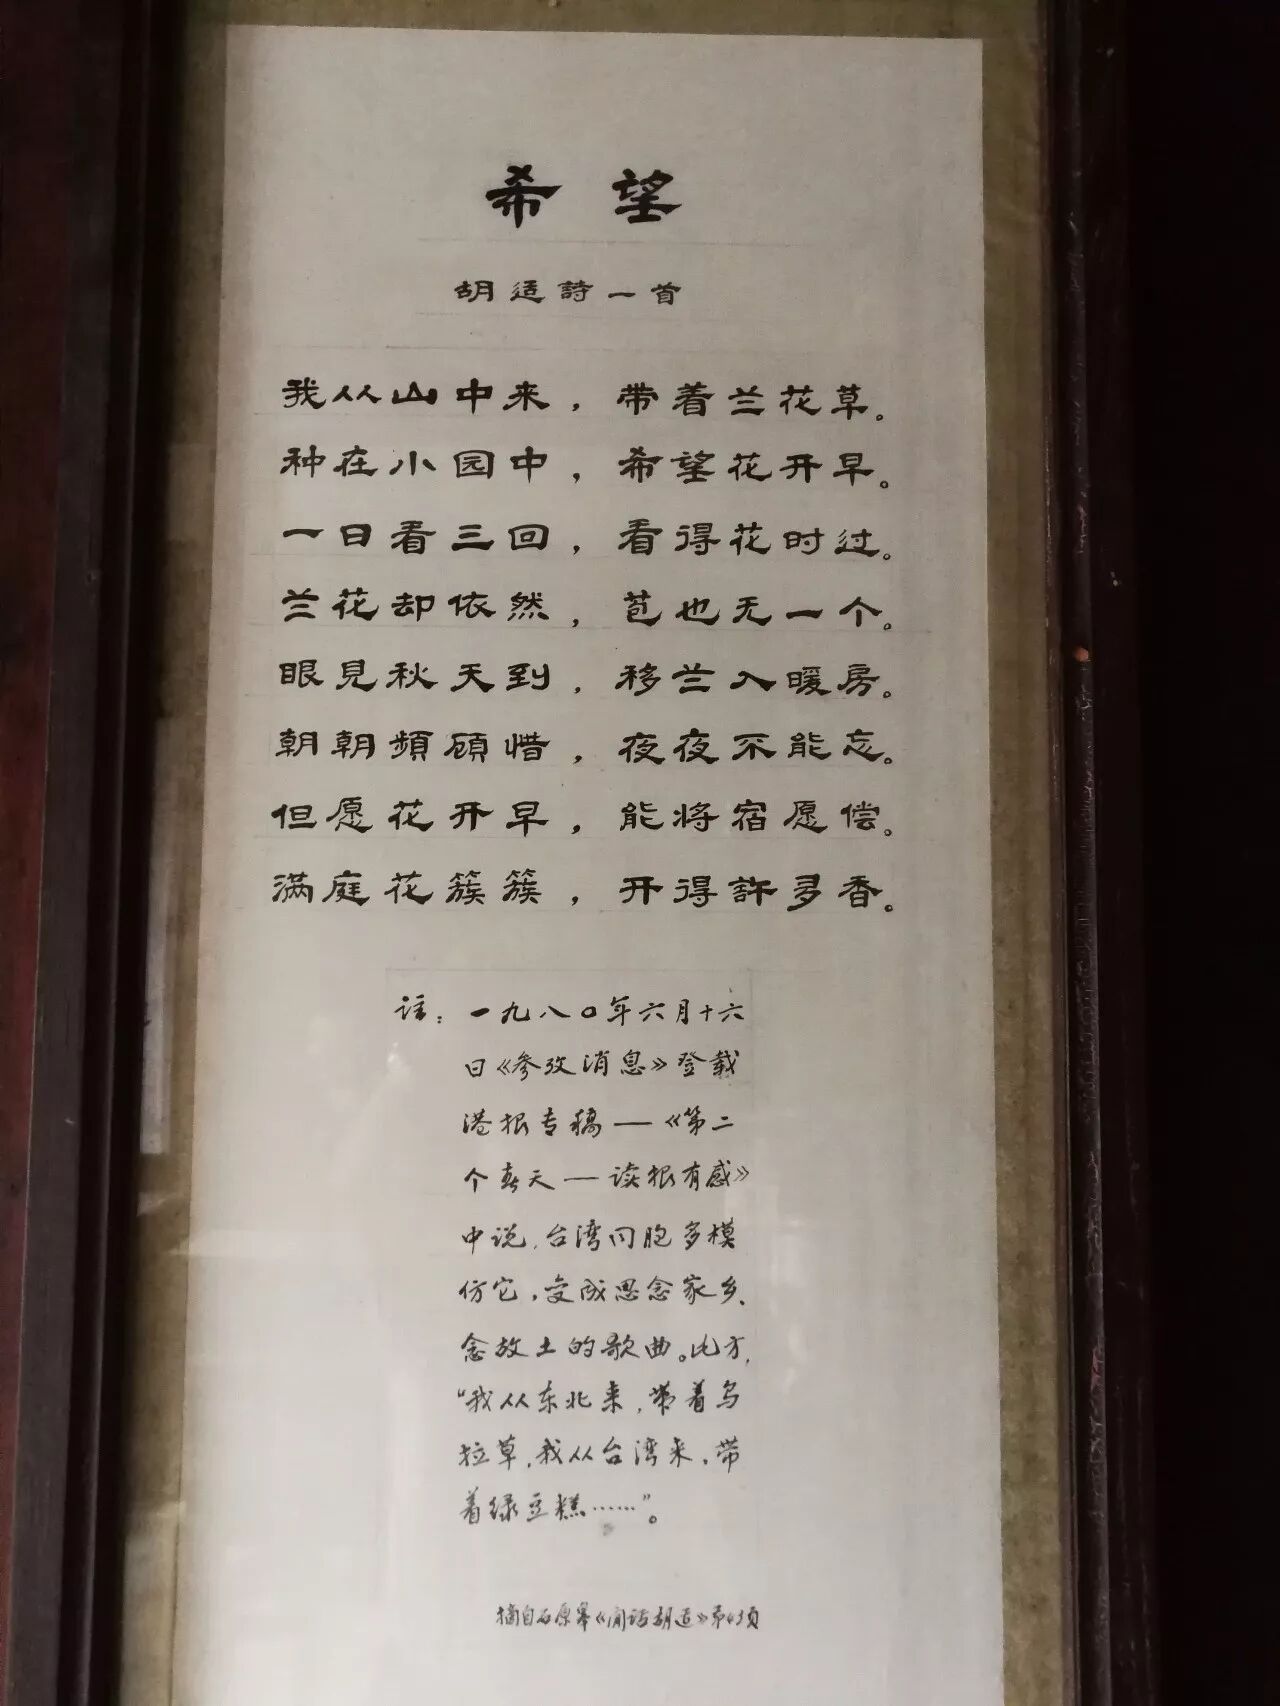 希望
胡适詩一首
我从山中来，带着兰花草。
种在小园中，希望花开早。
一日看三回，看得花时过。
兰花却依然，苞也无一个。
眼見秋天到，移兰入暖房。
朝朝頻顧惜，夜夜不能忘。
但愿花开早，能将宿愿偿。
满庭花簇簇，开得許多香。
注：一九八〇年六月十六
日《参攷消息》登载
港报专稿—《第二
个春天—读报有感》
中说，台湾同胞多模
仿它，变成思念家乡、
念故土的歌曲。比方，
“我从东北来，带着乌
拉草，我从台湾来，带
着绿豆糕……”。
摘自石原皋《闲话胡适》第43页